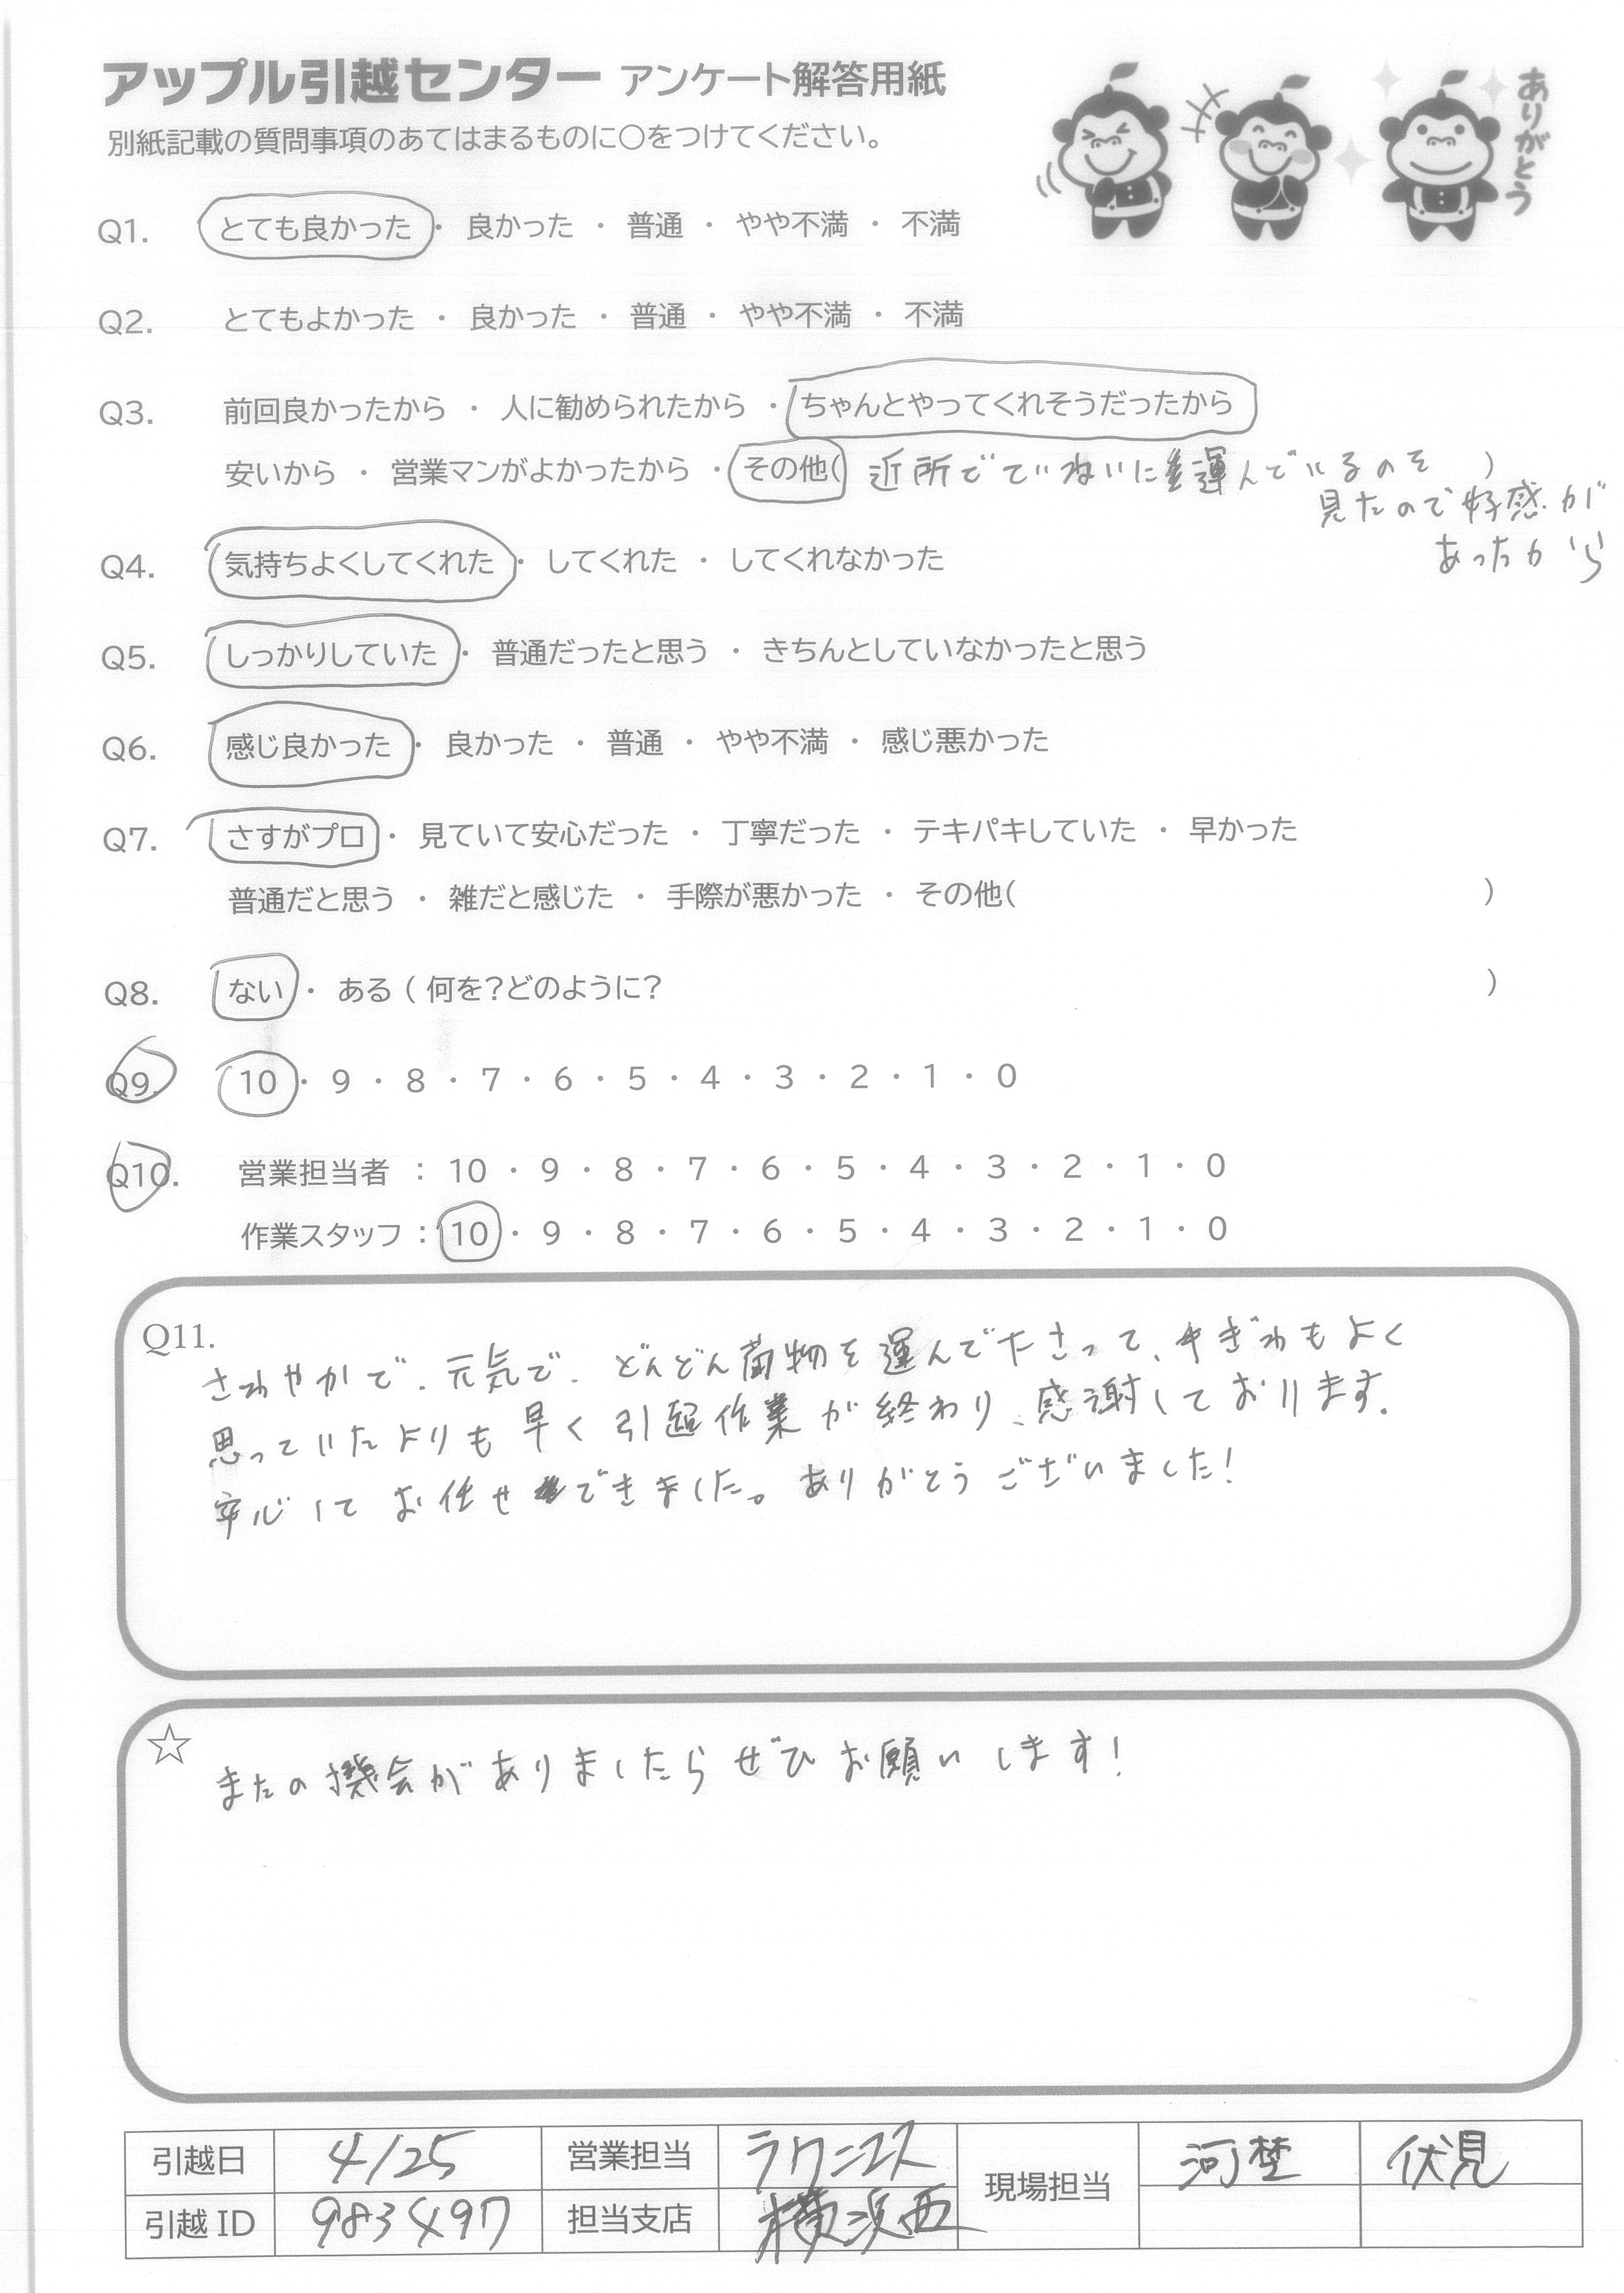 アップル引越センター アンケート解答用紙
別紙記載の質問事項のあてはまるものに〇をつけてください。
ありがとう
Q1. とても良かった ・ 良かった ・ 普通 ・ やや不満 ・ 不満
Q2. とてもよかった ・ 良かった ・ 普通 ・ やや不満 ・ 不満
Q3. 前回良かったから ・ 人に勧められたから ・ ちゃんとやってくれそうだったから
安いから ・ 営業マンがよかったから ・ その他( 近所でていねいに運んでいるのを )
見たので好感が
あったから
Q4. 気持ちよくしてくれた ・ してくれた ・ してくれなかった
Q5. しっかりしていた ・ 普通だったと思う ・ きちんとしていなかったと思う
Q6. 感じ良かった ・ 良かった ・ 普通 ・ やや不満 ・ 感じ悪かった
Q7. さすがプロ ・ 見ていて安心だった ・ 丁寧だった ・ テキパキしていた ・ 早かった
普通だと思う ・ 雑だと感じた ・ 手際が悪かった ・ その他( )
Q8. ない ・ ある ( 何を?どのように? )
Q9. 10 ・ 9 ・ 8 ・ 7 ・ 6 ・ 5 ・ 4 ・ 3 ・ 2 ・ 1 ・ 0
Q10. 営業担当者 : 10 ・ 9 ・ 8 ・ 7 ・ 6 ・ 5 ・ 4 ・ 3 ・ 2 ・ 1 ・ 0
作業スタッフ : 10 ・ 9 ・ 8 ・ 7 ・ 6 ・ 5 ・ 4 ・ 3 ・ 2 ・ 1 ・ 0
Q11.
さわやかで、元気で、どんどん荷物を運んで下さって、手ぎわもよく
思っていたよりも早く引越作業が終わり、感謝しております.
安心してお任せできました。ありがとうございました!
☆
またの機会がありましたらぜひお願いします!
引越日 4/25 営業担当 現場担当 河埜 伏見
引越ID 983497 担当支店 横浜西